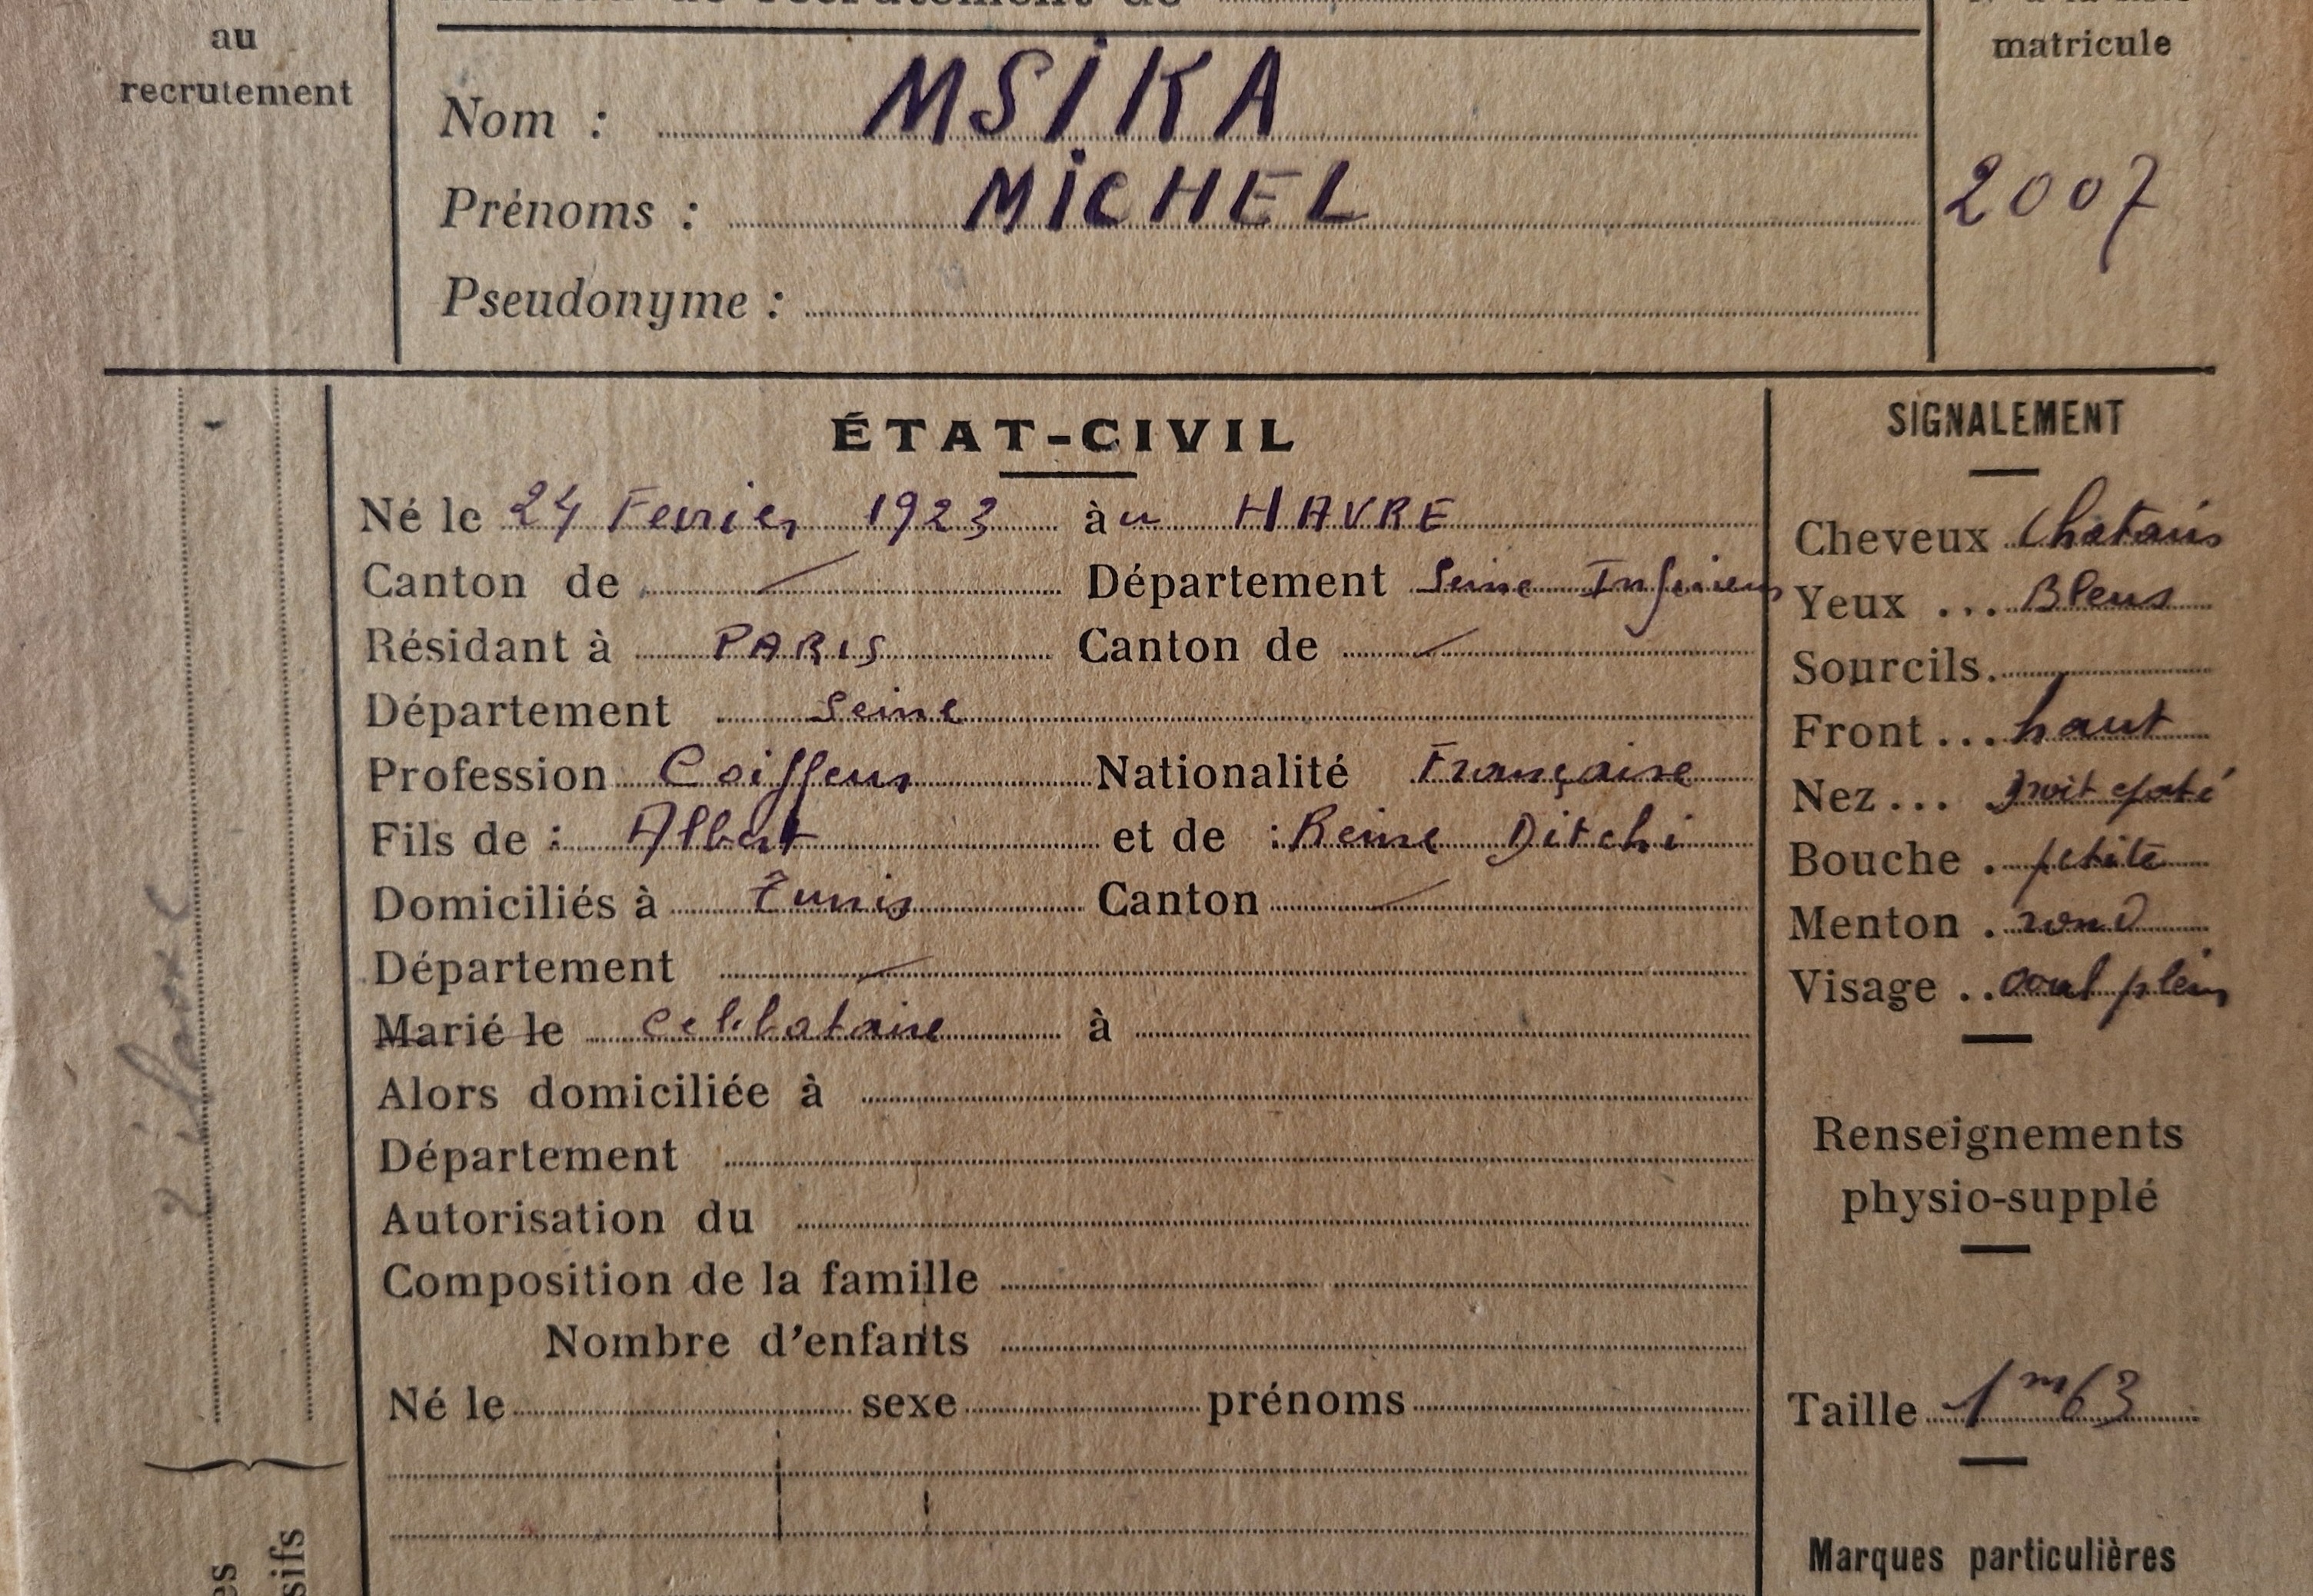 au
recrutement
matricule
Nom : MSiKA
Prénoms : MiCHEL
2007
Pseudonyme :
ÉTAT-CIVIL
Né le 24 Fevrier 1923 àu HAVRE
Canton de Département Seine Inferieure
Résidant à PARIS Canton de
Département Seine
Profession Coiffeur Nationalité Française
Fils de : Albert et de : Reine Ditchi
Domiciliés à Tunis Canton
Département
Marié le celibataire à
Alors domiciliée à
Département
Autorisation du
Composition de la famille
Nombre d'enfants
Né le sexe prénoms
SIGNALEMENT
Cheveux Chatains
Yeux ... Bleus
Sourcils.
Front ... haut
Nez ... droit epaté
Bouche . petite
Menton . rond
Visage .. oval plein
Renseignements
physio-supplé
Taille 1m63
Marques particulières